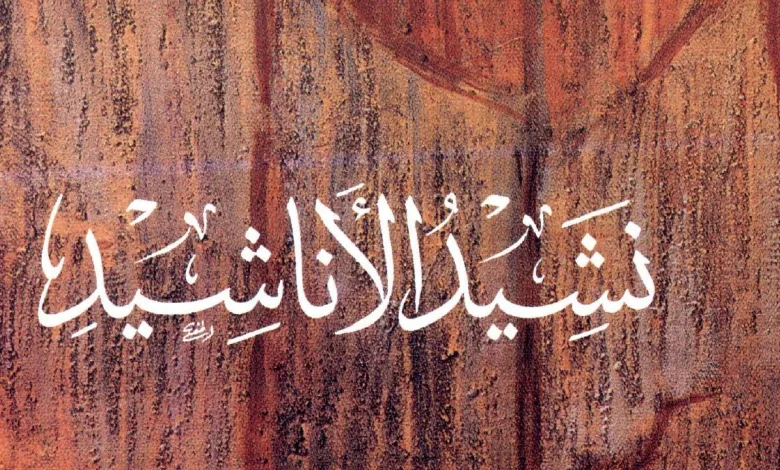 نَشِيدُ الأَنَاشِيدِ